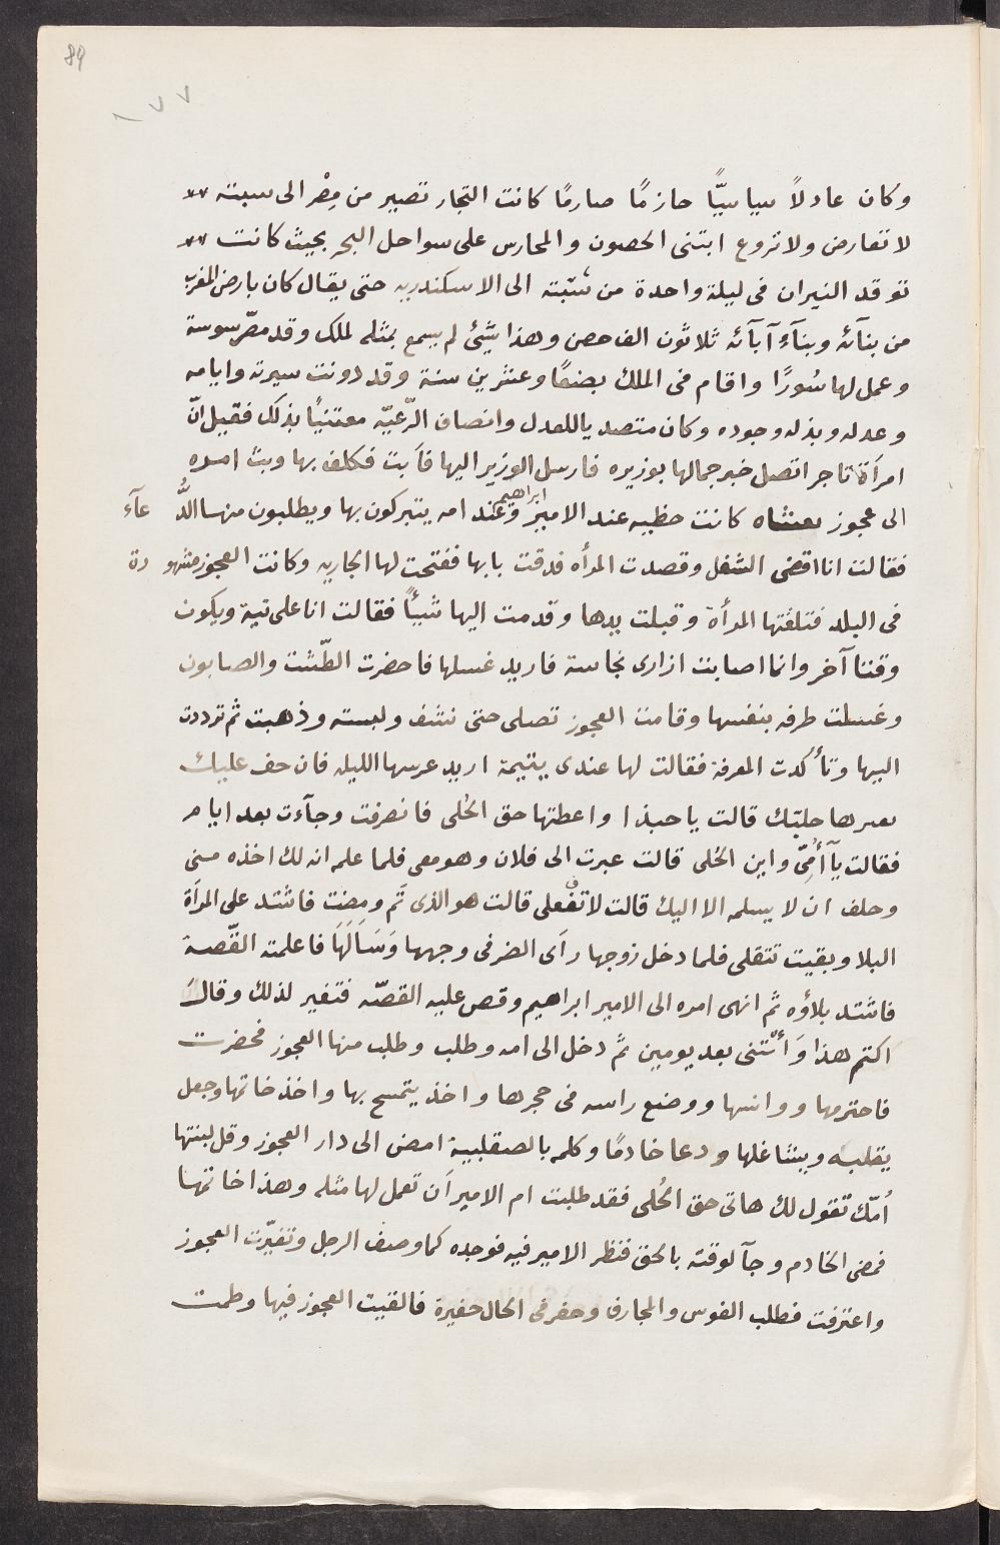 89
١٧٧
وكان عادلاً سياسيًّا حازمًا صارمًا كانت التجار تصير من مِصْر الى سبتة
لا تعارض ولا تروع ابتنى الحصون والمحارس على سواحل البحر بحيث كانت
توقد النيران فى ليلة واحدة من سَبْته الى الاسكندريه حتى يقال كان بارض المغرب
من بنآئه وبنآء آبآئه ثلاثون الف حصن وهذا شئ لم يسمع بمثله لملك وقد مصّر سوسة
وعمل لها سُورًا واقام فى الملك بضعًا وعشرين سنة وقد دونت سيرته وايامه
وعدله وبذله وجوده وكان متصديا للعدل وانصاف الرّعيّه معتنيًا بذلك فقيل انّ
امرأة تاجر اتصل خبر جمالها بوزيره فارسل الوزير اليها فأبت فكلف بها وبث امره
الى عجوز كانت حظيه عند الامير ابراهيم وعند امه يتبركون بها ويطلبون منها الدُّعآء
فقالت انا اقضى الشغل وقصدت المرأه فدقت بابها ففتحت لها الجاريه وكانت العجوز مشهورة
فى البلد فتلقتها المرأة وقبلت يدها وقدمت اليها شيئًا فقالت انا على نية ويكون
وقتا آخر وانما اصابت ازارى نجاسة فاريد غسلها فاحضرت الطّشت والصابون
وغسلت طرفه بنفسها وقامت العجوز تصلى حتى نشف ولبسته وذهبت ثم ترددت
اليها وتأكدت المعرفة فقالت لها عندى يتيمة اريد عرسها الليله فان خف عليك
حليّك قالت يا حبذا واعطتها حق الحُلى فانصرفت وجآءت بعد ايام
فقالت يآ أُمِّى واين الحُلى قالت عبرت الى فلان وهو معى فلما علم انه لك اخذه منى
وحلف ان لا يسلمه الا اليك قالت لا تفعلى قالت هو الذى تَمَّ ومضت فاشتد على المرأة
البلا وبقيت تتقلى فلما دخل زوجها رأى الضر فى وجهها وَسَأَلَهَا فاعلمته القّصة
فاشتد بلاؤه ثم انهى امره الى الامير ابراهيم وقص عليه القصّه فتغير لذلك وقال
اكتم هذا وَأتْتنى بعد يومين ثمَّ دخل الى امه وطلب وطلب منها العجوز فحضرت
فاحترمها ووانسها ووضع راسه فى حجرها واخذ يتمسح بها واخذ خاتمها وجعل
يقلبه ويشاغلها ودعا خادمًا وكلمه بالصقلبية امض الى دار العجوز وقل لبنتها
اُمّك تقول لك هاتى حق الحُلى فقد طلبت ام الامير اَن تعمل لها مثله وهذا خاتمها
فمضى الخادم وجآ لوقته بالحق فنظر الامير فيه فوجده كما وصف الرجل وتغيّرت العجوز
واعترفت فطلب الفوس والمجارف وحفر فى الحال حفيرة فالقيت العجوز فيها وطمت